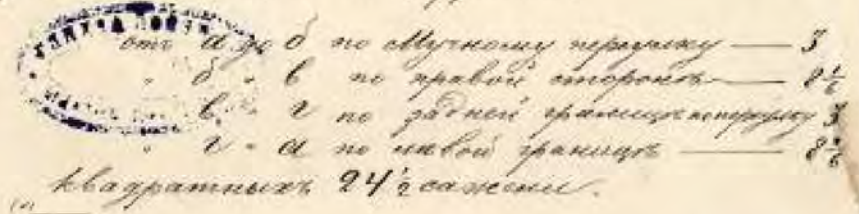 отъ а до б по Мучному переулку — 3
" б " в по правой сторонѣ — 8 1/6
" в " г по задней границѣ 3
" г " а по лѣвой границѣ — 8 1/6
Квадратныхъ 24 1/2 сажени.